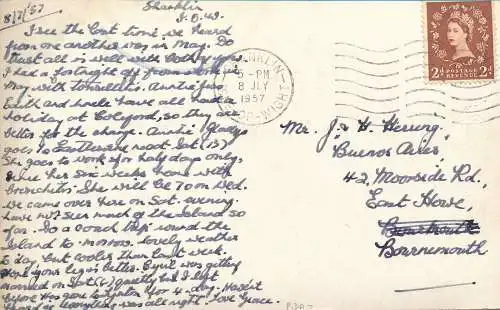 8/7/57
Shanklin
I.O.W.
I see the last time we heard
from one another was in May. Do
trust all is well with both of you.
I had a fortnight off from work in
May with tonsillitis. Auntie Jess
Edith and Uncle have all had a
holiday at Colyford, so they are
better for the change. Auntie Gladys
goes to Eastbourne next Sat. (13th)
She goes to work for half days only,
since her six weeks home with
bronchitis. She will be 70 on Wed.
We came over here on Sat. evening.
Have not seen much of the Island so
far. Do a coach trip round the
Island to-morrow. Lovely weather
to day, but cooler than last week.
Hope your leg is better. Cyril was getting
married on Sat (6) quietly but I left
before. Has gone to for 4 days. Haven't
heard if everything was all right. Love Grace.
SHANKLIN
5-PM
8 JLY
1957
I. OF WIGHT
POSTAGE
REVENUE
2d 2d
Mr. J. H. Herring.
"Buenos Aires"
42, Moorside Rd.,
East Howe,
Bournemouth